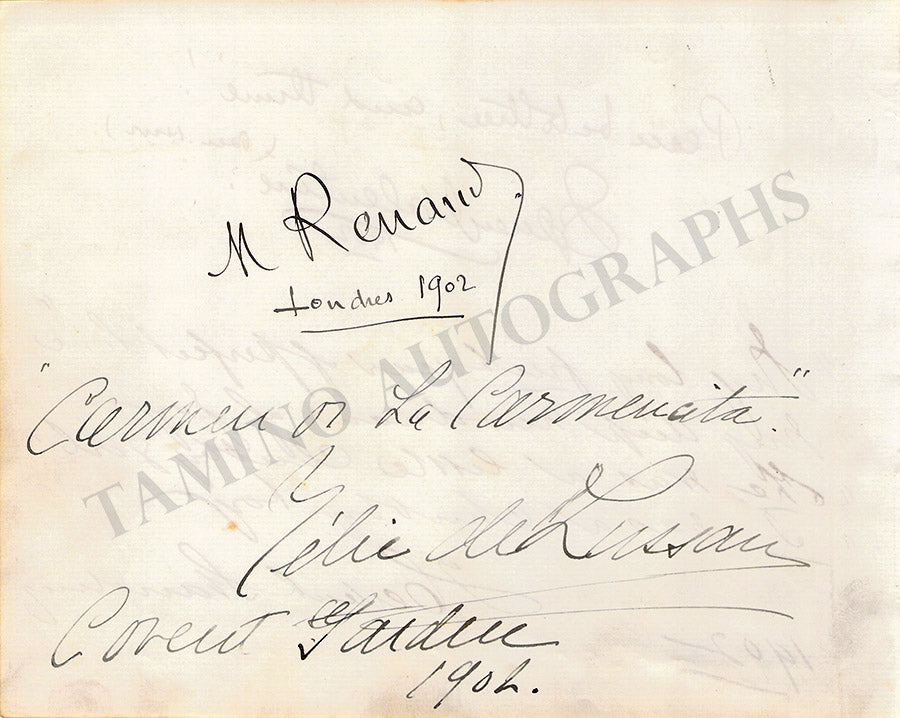 M Renaud
Londres 1902
"Carmen or La Carmencita."
Zélie de Lussan
Covent Garden
1902.
TAMINO AUTOGRAPHS